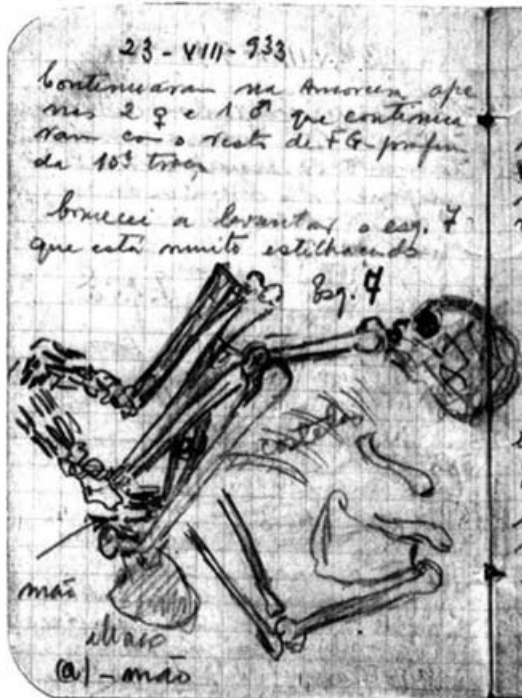 23-VIII-933
Continuaram na Amoreira ape
nas 2 ♀ e 1 ♂ que continua
ram com o resto de FG-profun
da 10ª
Comecei a levantar o esq. 7
que está muito estilhaçado
Esq. 7
costelas
mão
iliaco
(a) - mão